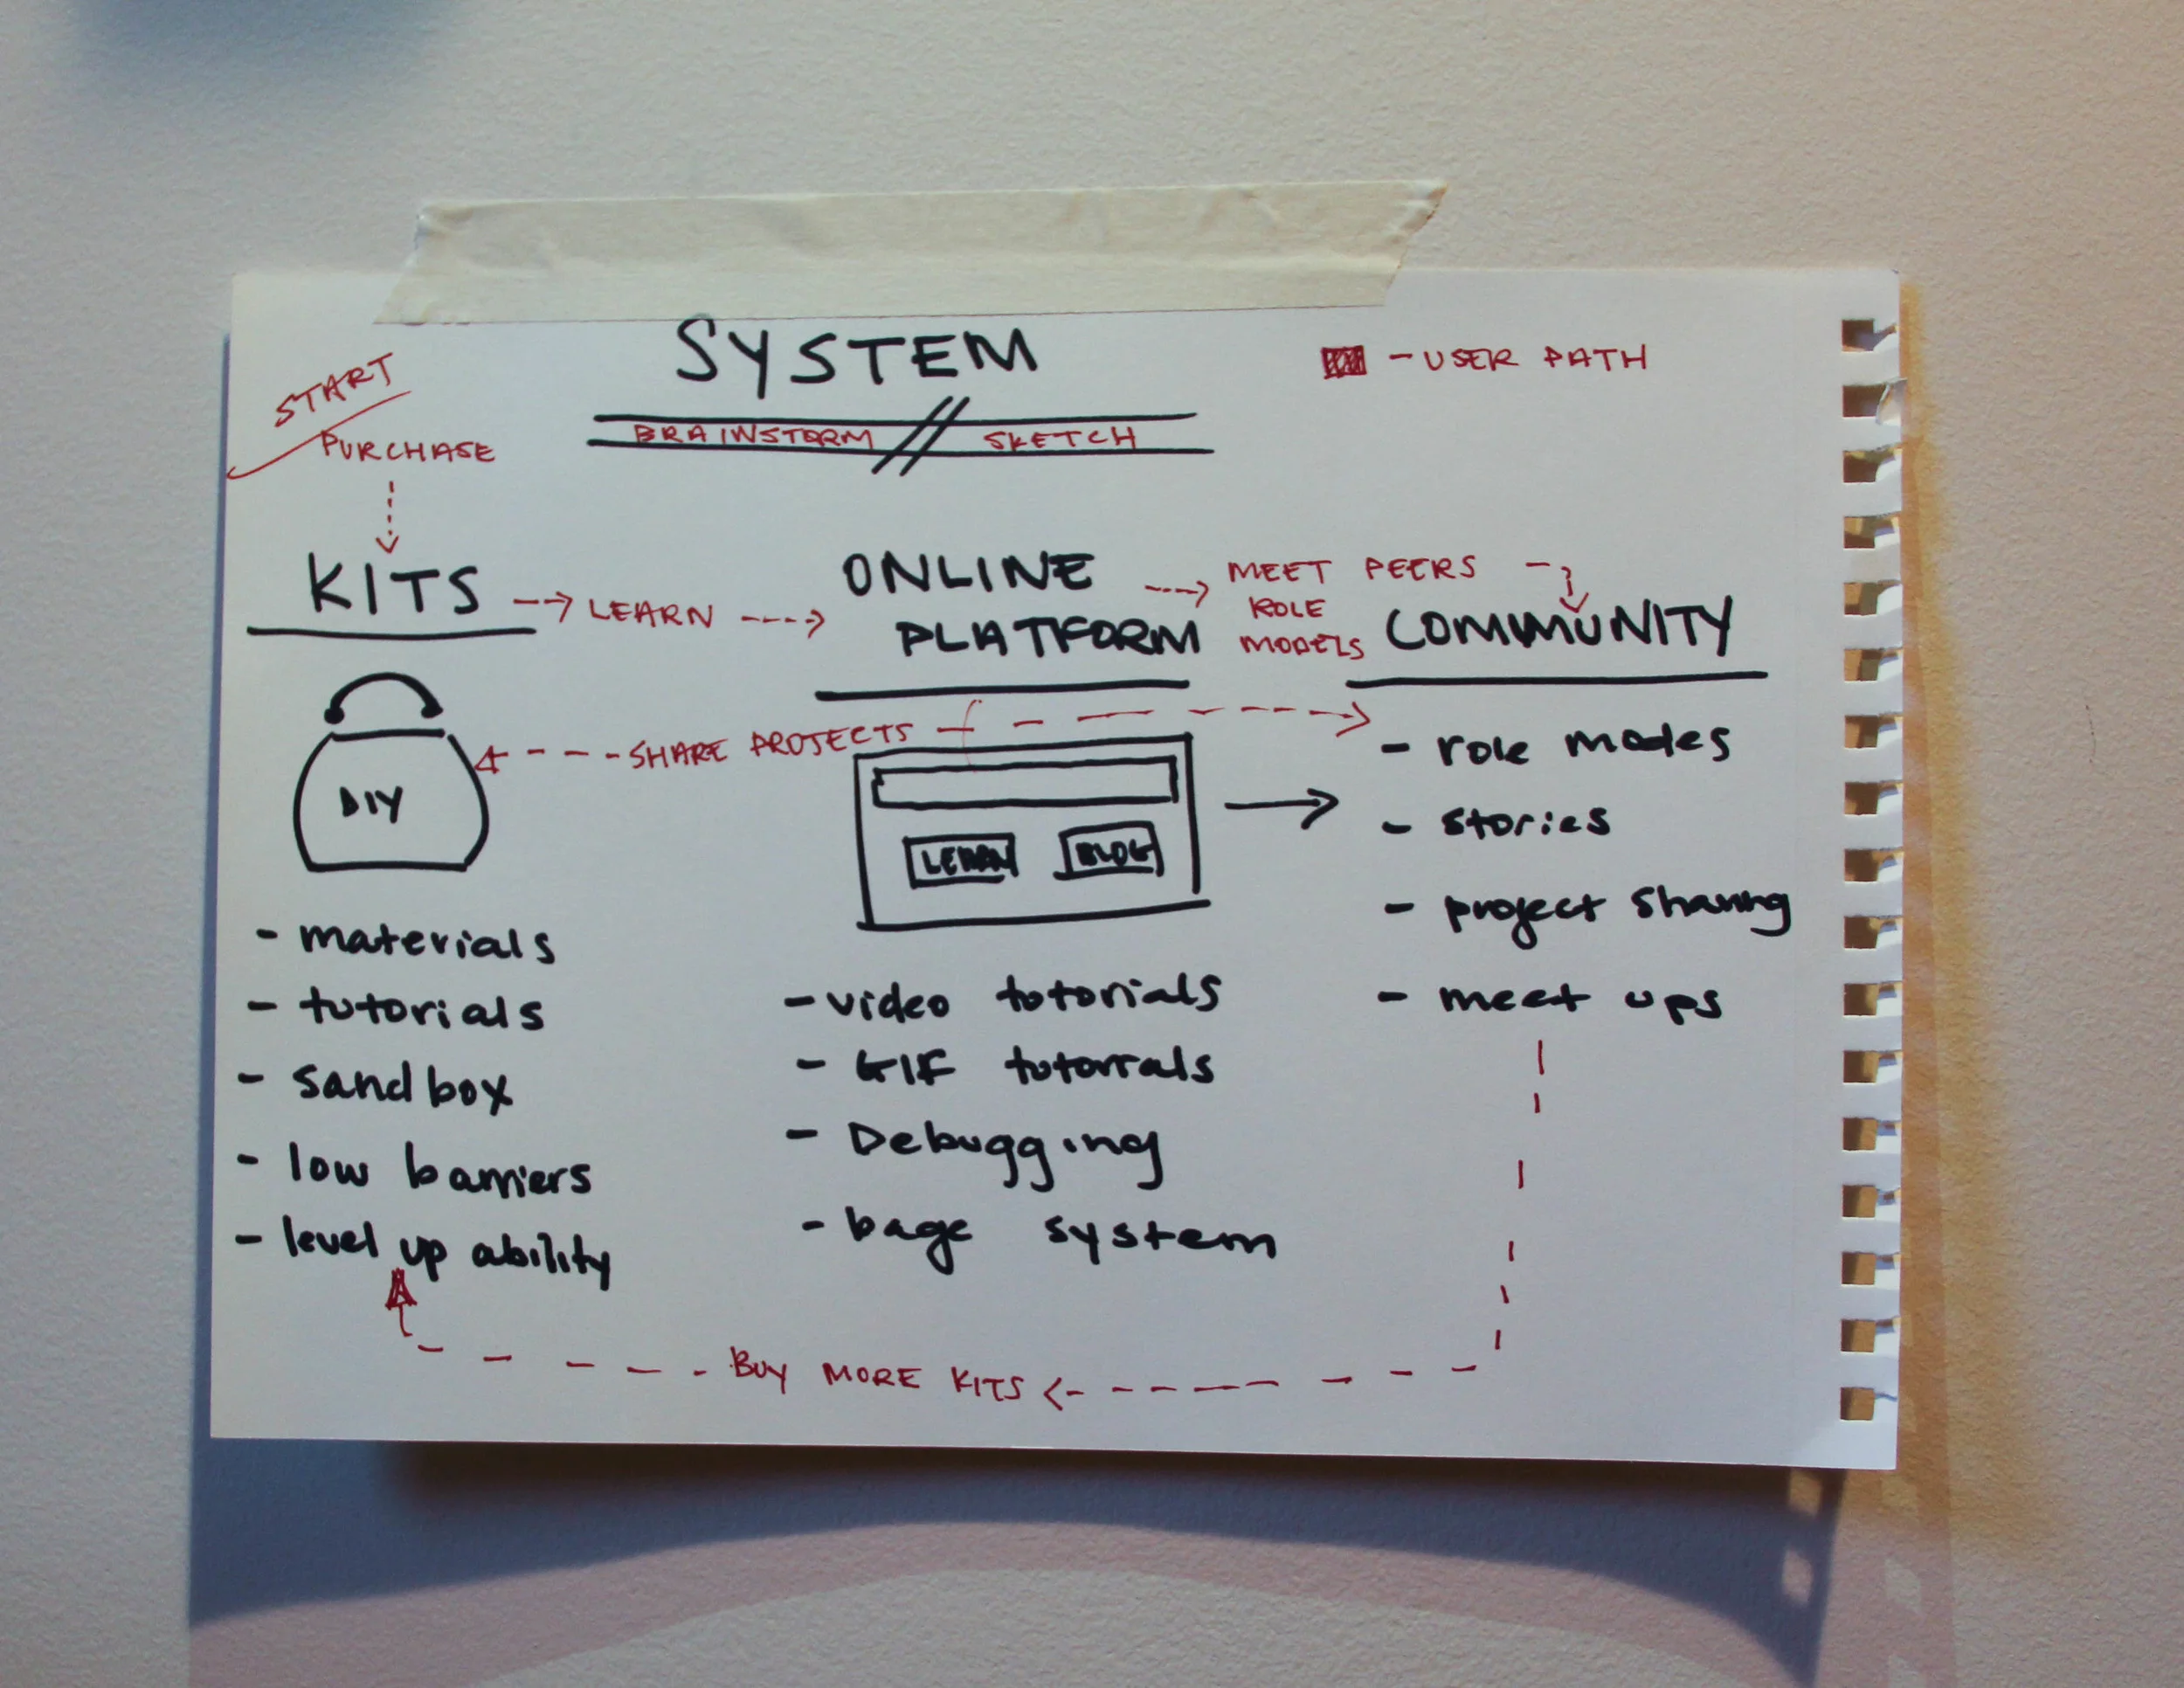 SYSTEM
BRAINSTORM // SKETCH
- USER PATH
START
PURCHASE
KITS
LEARN
ONLINE
PLATFORM
MEET PEERS
ROLE
MODELS
COMMUNITY
SHARE PROJECTS
DIY
- materials
- tutorials
- sandbox
- low barriers
- level up ability
LEARN
BLOG
- video totorials
- GIF tutorrals
- Debugging
- bage system
- role modes
- stories
- project sharing
- meet ups
BUY MORE KITS